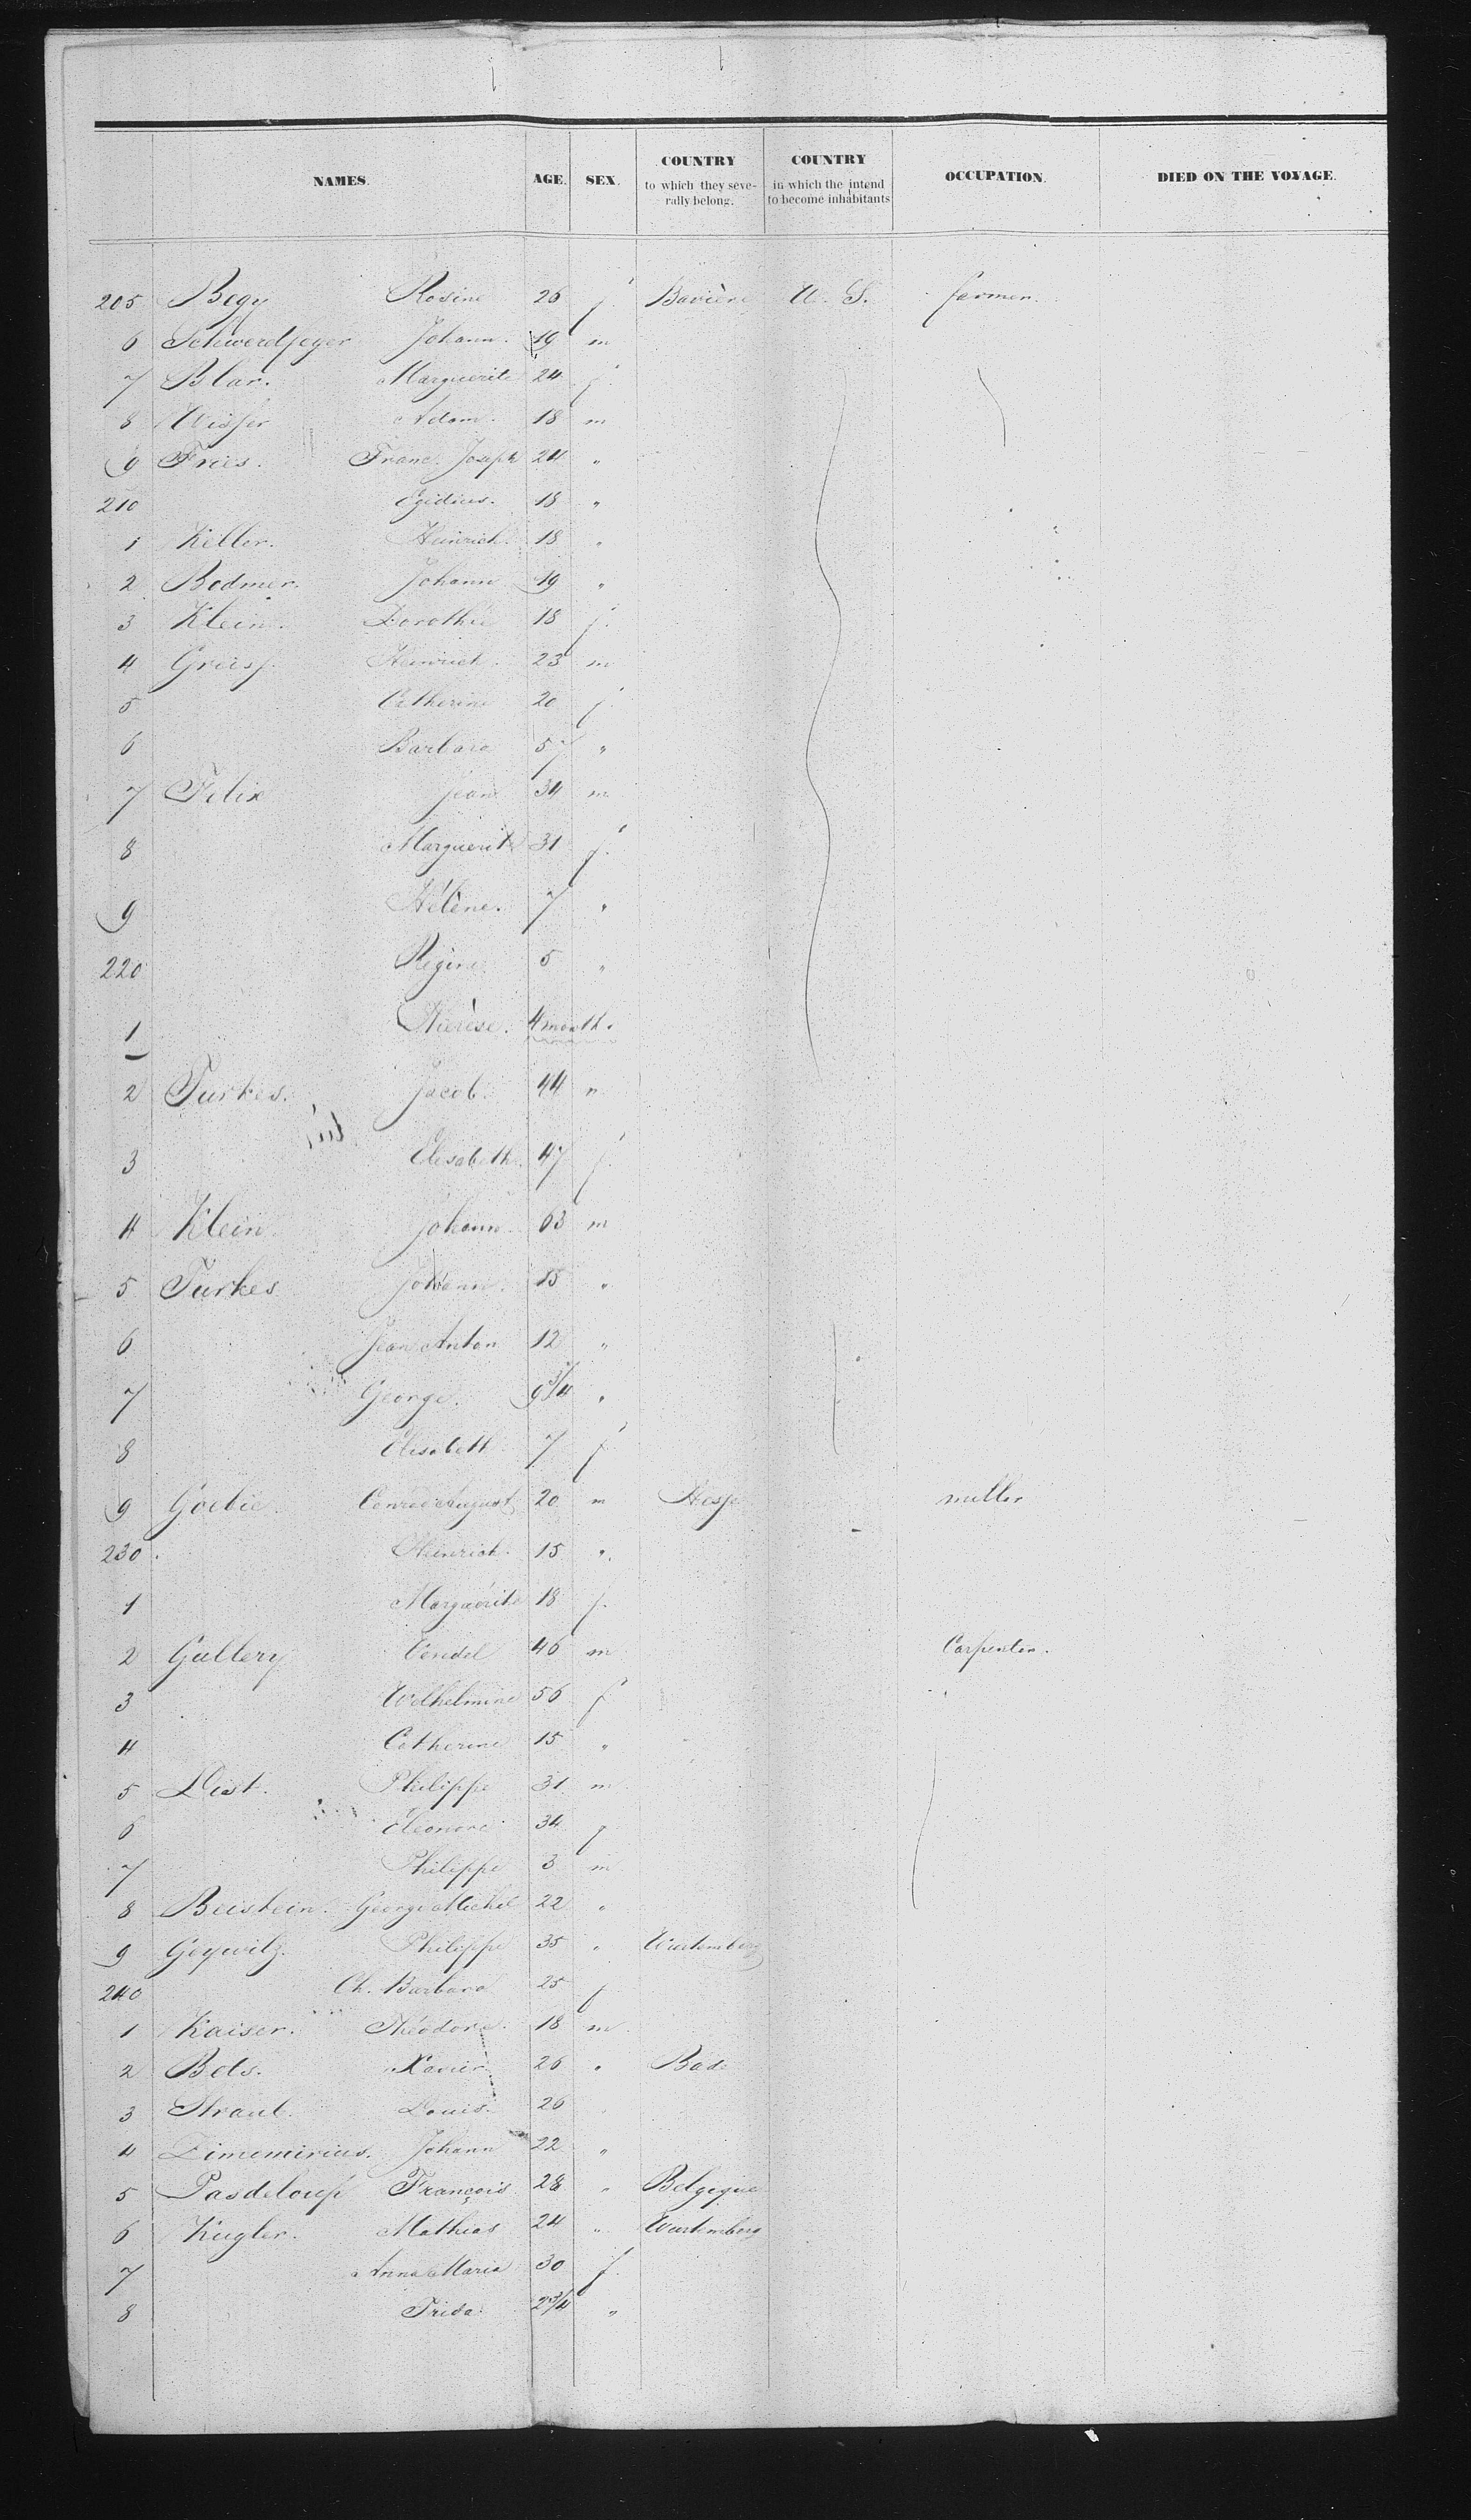 NAMES. AGE. SEX. COUNTRY to which they severally belong. COUNTRY in which the intend to become inhabitants OCCUPATION. DIED ON THE VOYAGE.
205 Begy Rosine 26 f. Bavière U. S. farmer.
6 Schwerdfeger Johann. 19 m
7 Blar. Marguerite 24 f.
8 Adam. 18 m
9 Fries. Franc. Joseph 24 "
210 Egidius. 18 "
1 Keller. Heinrich. 18 "
2 Bodmer. Johann 19 "
3 Klein. Dorothée 18 f.
4 Heinrich. 23 m
5 Catherine 20 f.
6 Barbara 57 "
7 Felix Jean 34 m
8 Marguerite 31 f.
9 Hélène. 7 "
220 Régine 5 "
1 Thérèse. 4 month.
2 Turkes. Jacob. 44 m
3 Elisabeth. 47 f.
4 Klein. Johann. 63 m
5 Turkes Johann. 15 "
6 Jean Anton 12 "
7 George. 9 3/4 "
8 Elisabeth 7 f
9 Goebie Conrad August 20 m Hesse miller
230. Heinrich. 15 "
1 Marguerite 18 f.
2 Gallery Vendel 46 m Carpenter.
3 Wilhelmine 56 f
4 Catherine 15 "
5 List. Philippe 31 m
6 Eleonore 34 f
7 Philippe 3 m
8 Beistein. George Michel 22 "
9 Geywitz. Philippe 35 " Wurtemberg
240 Ch. Barbara 25 f
1 Kaiser. Théodore. 18 m
2 Bols. Xavier 26 " Bade
3 Straub. Louis. 26
4 Johann 22 "
5 Pasdeloup François 28 " Belgique
6 Kugler. Mathias 24 " Wurtemberg
7 Anna Maria 30 f.
8 Frida. 2 3/4 "